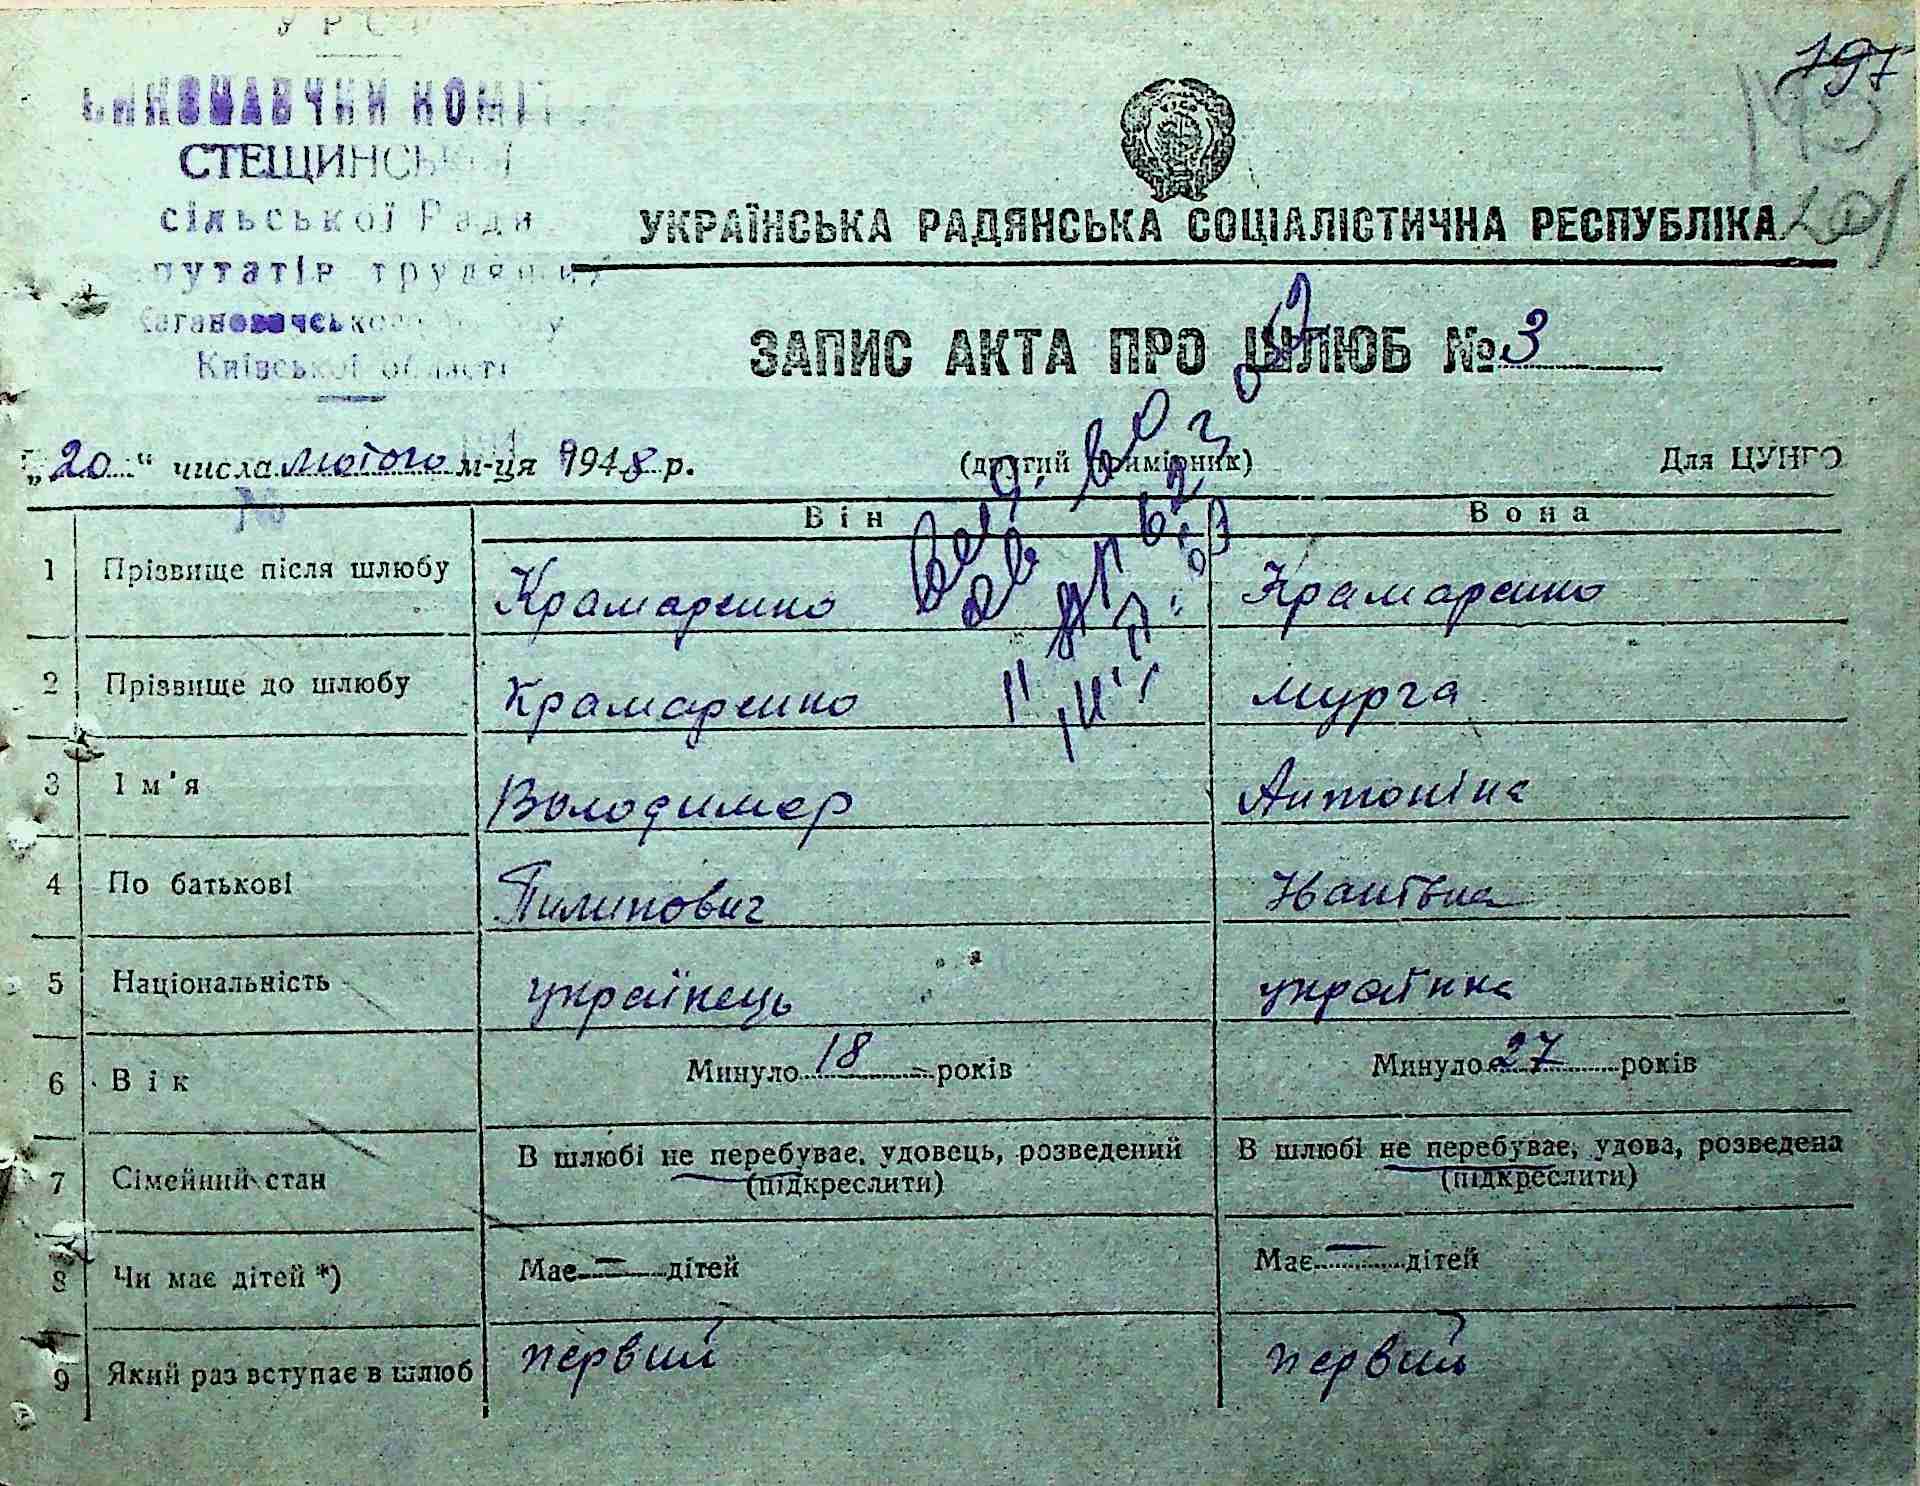 УРС
ВИКОНАВЧИЙ КОМІТ
СТЕЩИНСЬКОЇ
сільської Ради
путатів трудящих
Кагановичського району
Київської області
197
195
201
УКРАЇНСЬКА РАДЯНСЬКА СОЦІАЛІСТИЧНА РЕСПУБЛІКА
ЗАПИС АКТА ПРО ШЛЮБ № 3
„20“ числа лютого м-ця 1948 р. (другий примірник) Для ЦУНГО
№
Він Вона
1 Прізвище після шлюбу Крамаренко Крамаренко
2 Прізвище до шлюбу Крамаренко Мурга
3 Ім'я Володимер Антоніна
4 По батькові Пилипович Іванівна
5 Національність українець українка
6 Вік Минуло 18 років Минуло 27 років
7 Сімейний стан В шлюбі не перебуває, удовець, розведений (підкреслити) В шлюбі не перебуває, удова, розведена (підкреслити)
8 Чи має дітей *) Має — дітей Має — дітей
9 Який раз вступає в шлюб первий первий